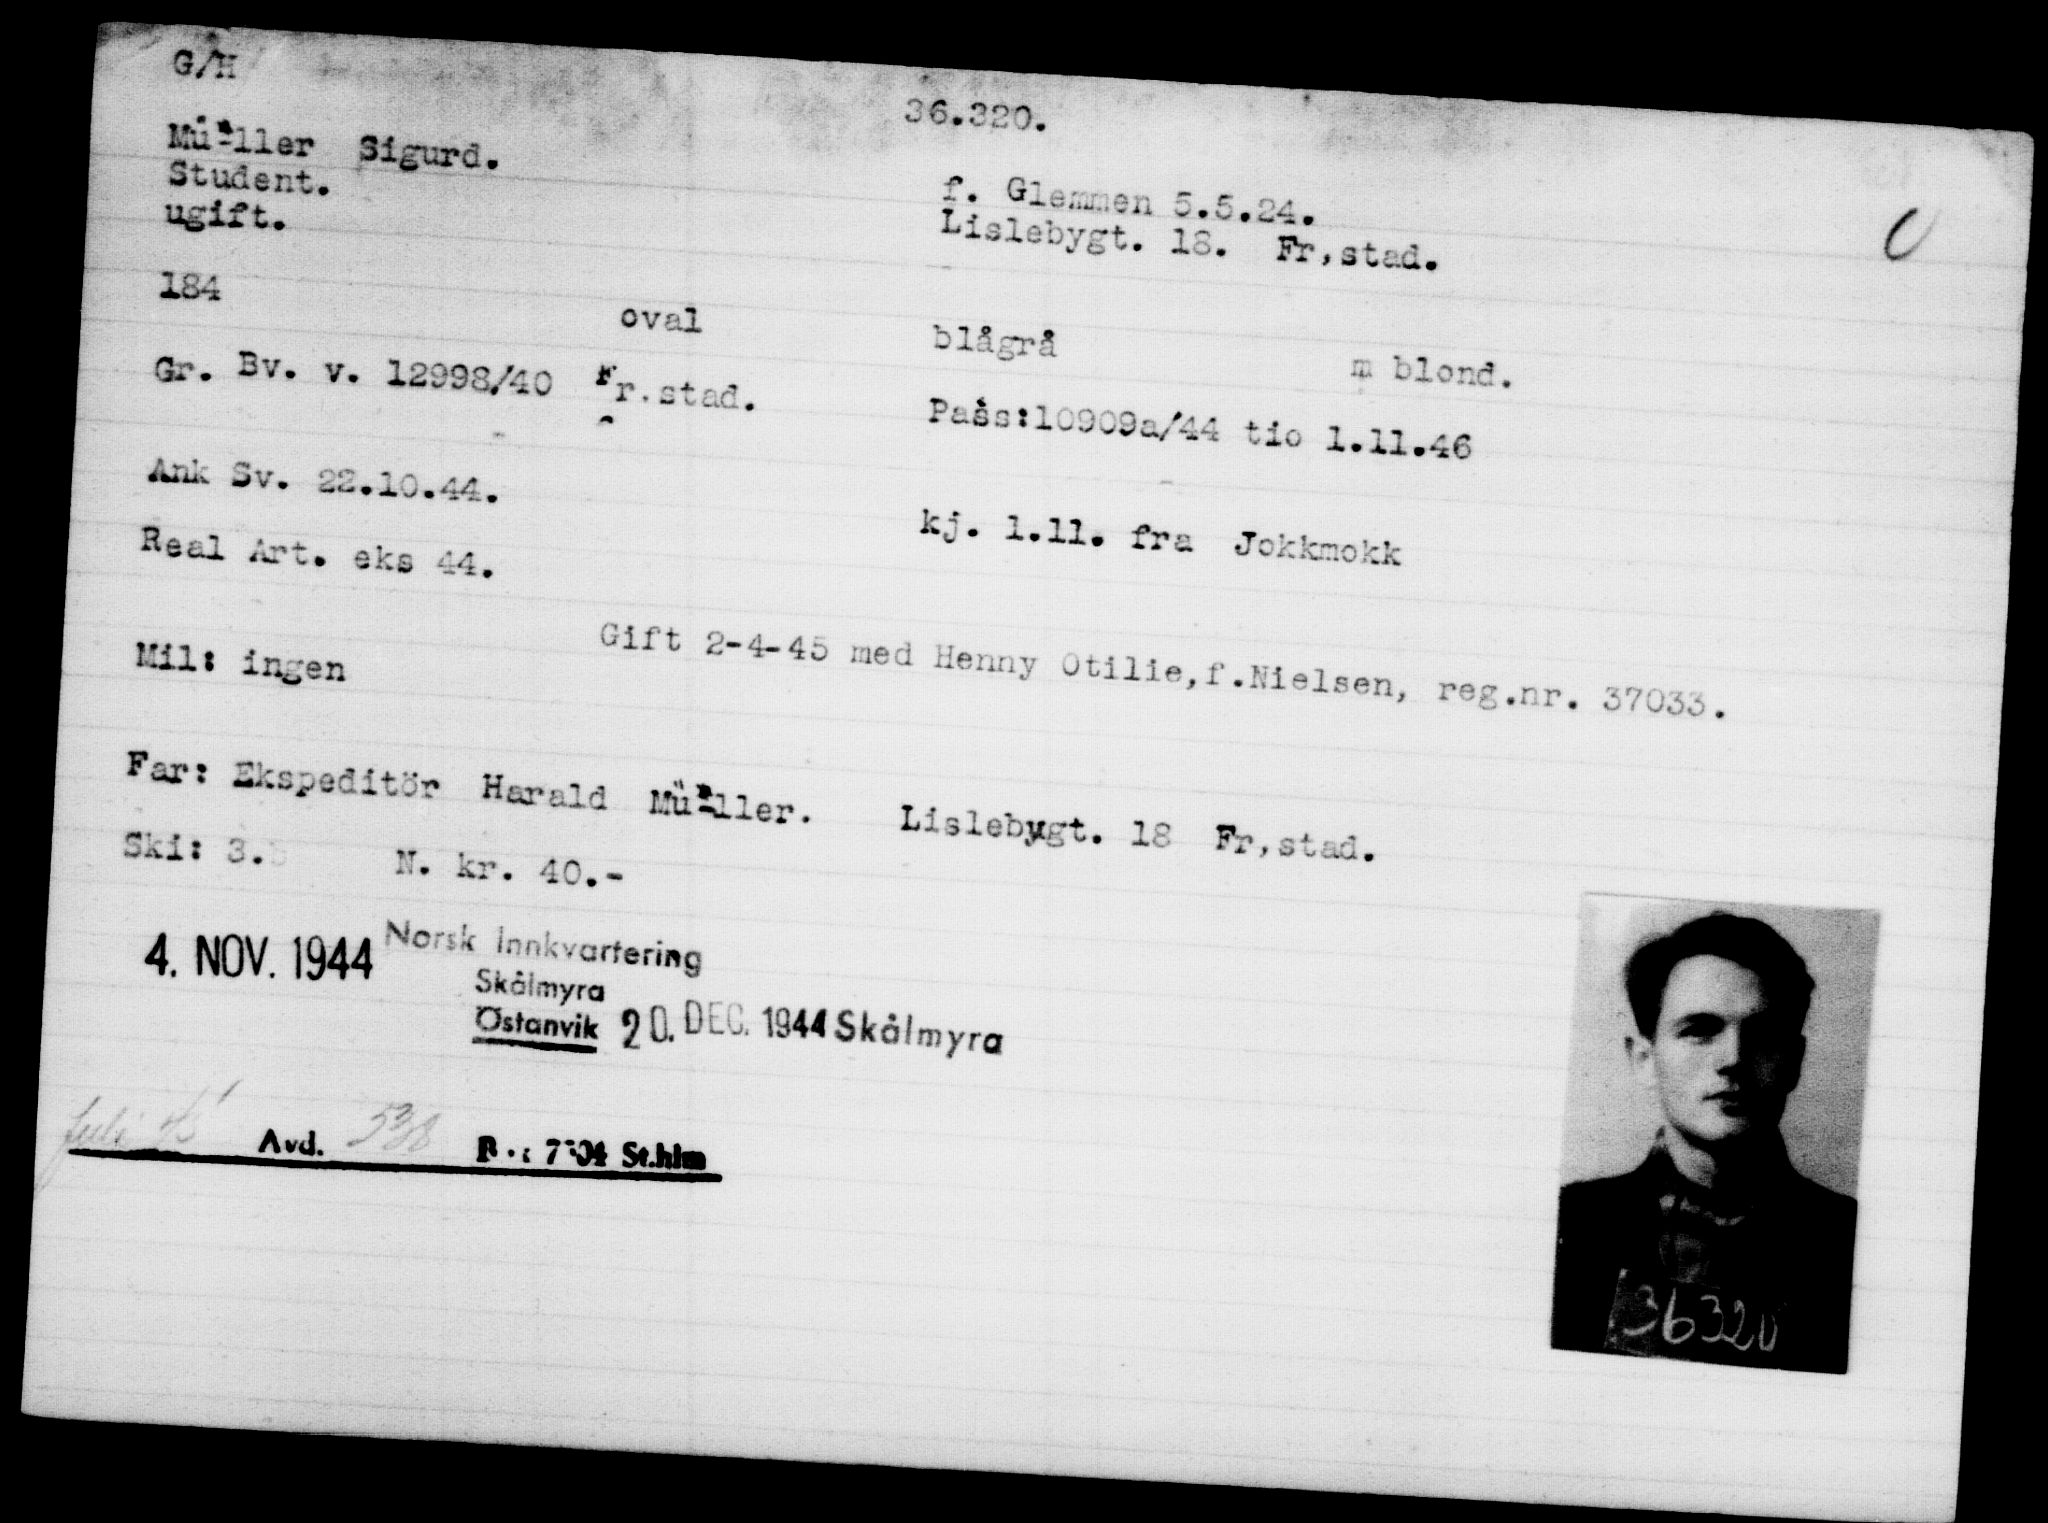 G/H
36.320.
Müller Sigurd.
Student.
f. Glemmen 5.5.24.
ugift.
Lislebygt. 18. Fr,stad.
184 oval blågrå m blond.
Gr. Bv. v. 12998/40 Fr.stad.
Pass:10909a/44 tio 1.11.46
Ank Sv. 22.10.44.
kj. 1.11. fra Jokkmokk
Real Art. eks 44.
Gift 2-4-45 med Henny Otilie,f.Nielsen, reg.nr. 37033.
Mil: ingen
Far: Ekspeditör Harald Müller. Lislebygt. 18 Fr,stad.
Ski: 3.5 N. kr. 40.-
4. NOV. 1944 Norsk Innkvartering
Skålmyra
Östanvik 20. DEC. 1944 Skålmyra
Avd. 538 St.hlm
36320